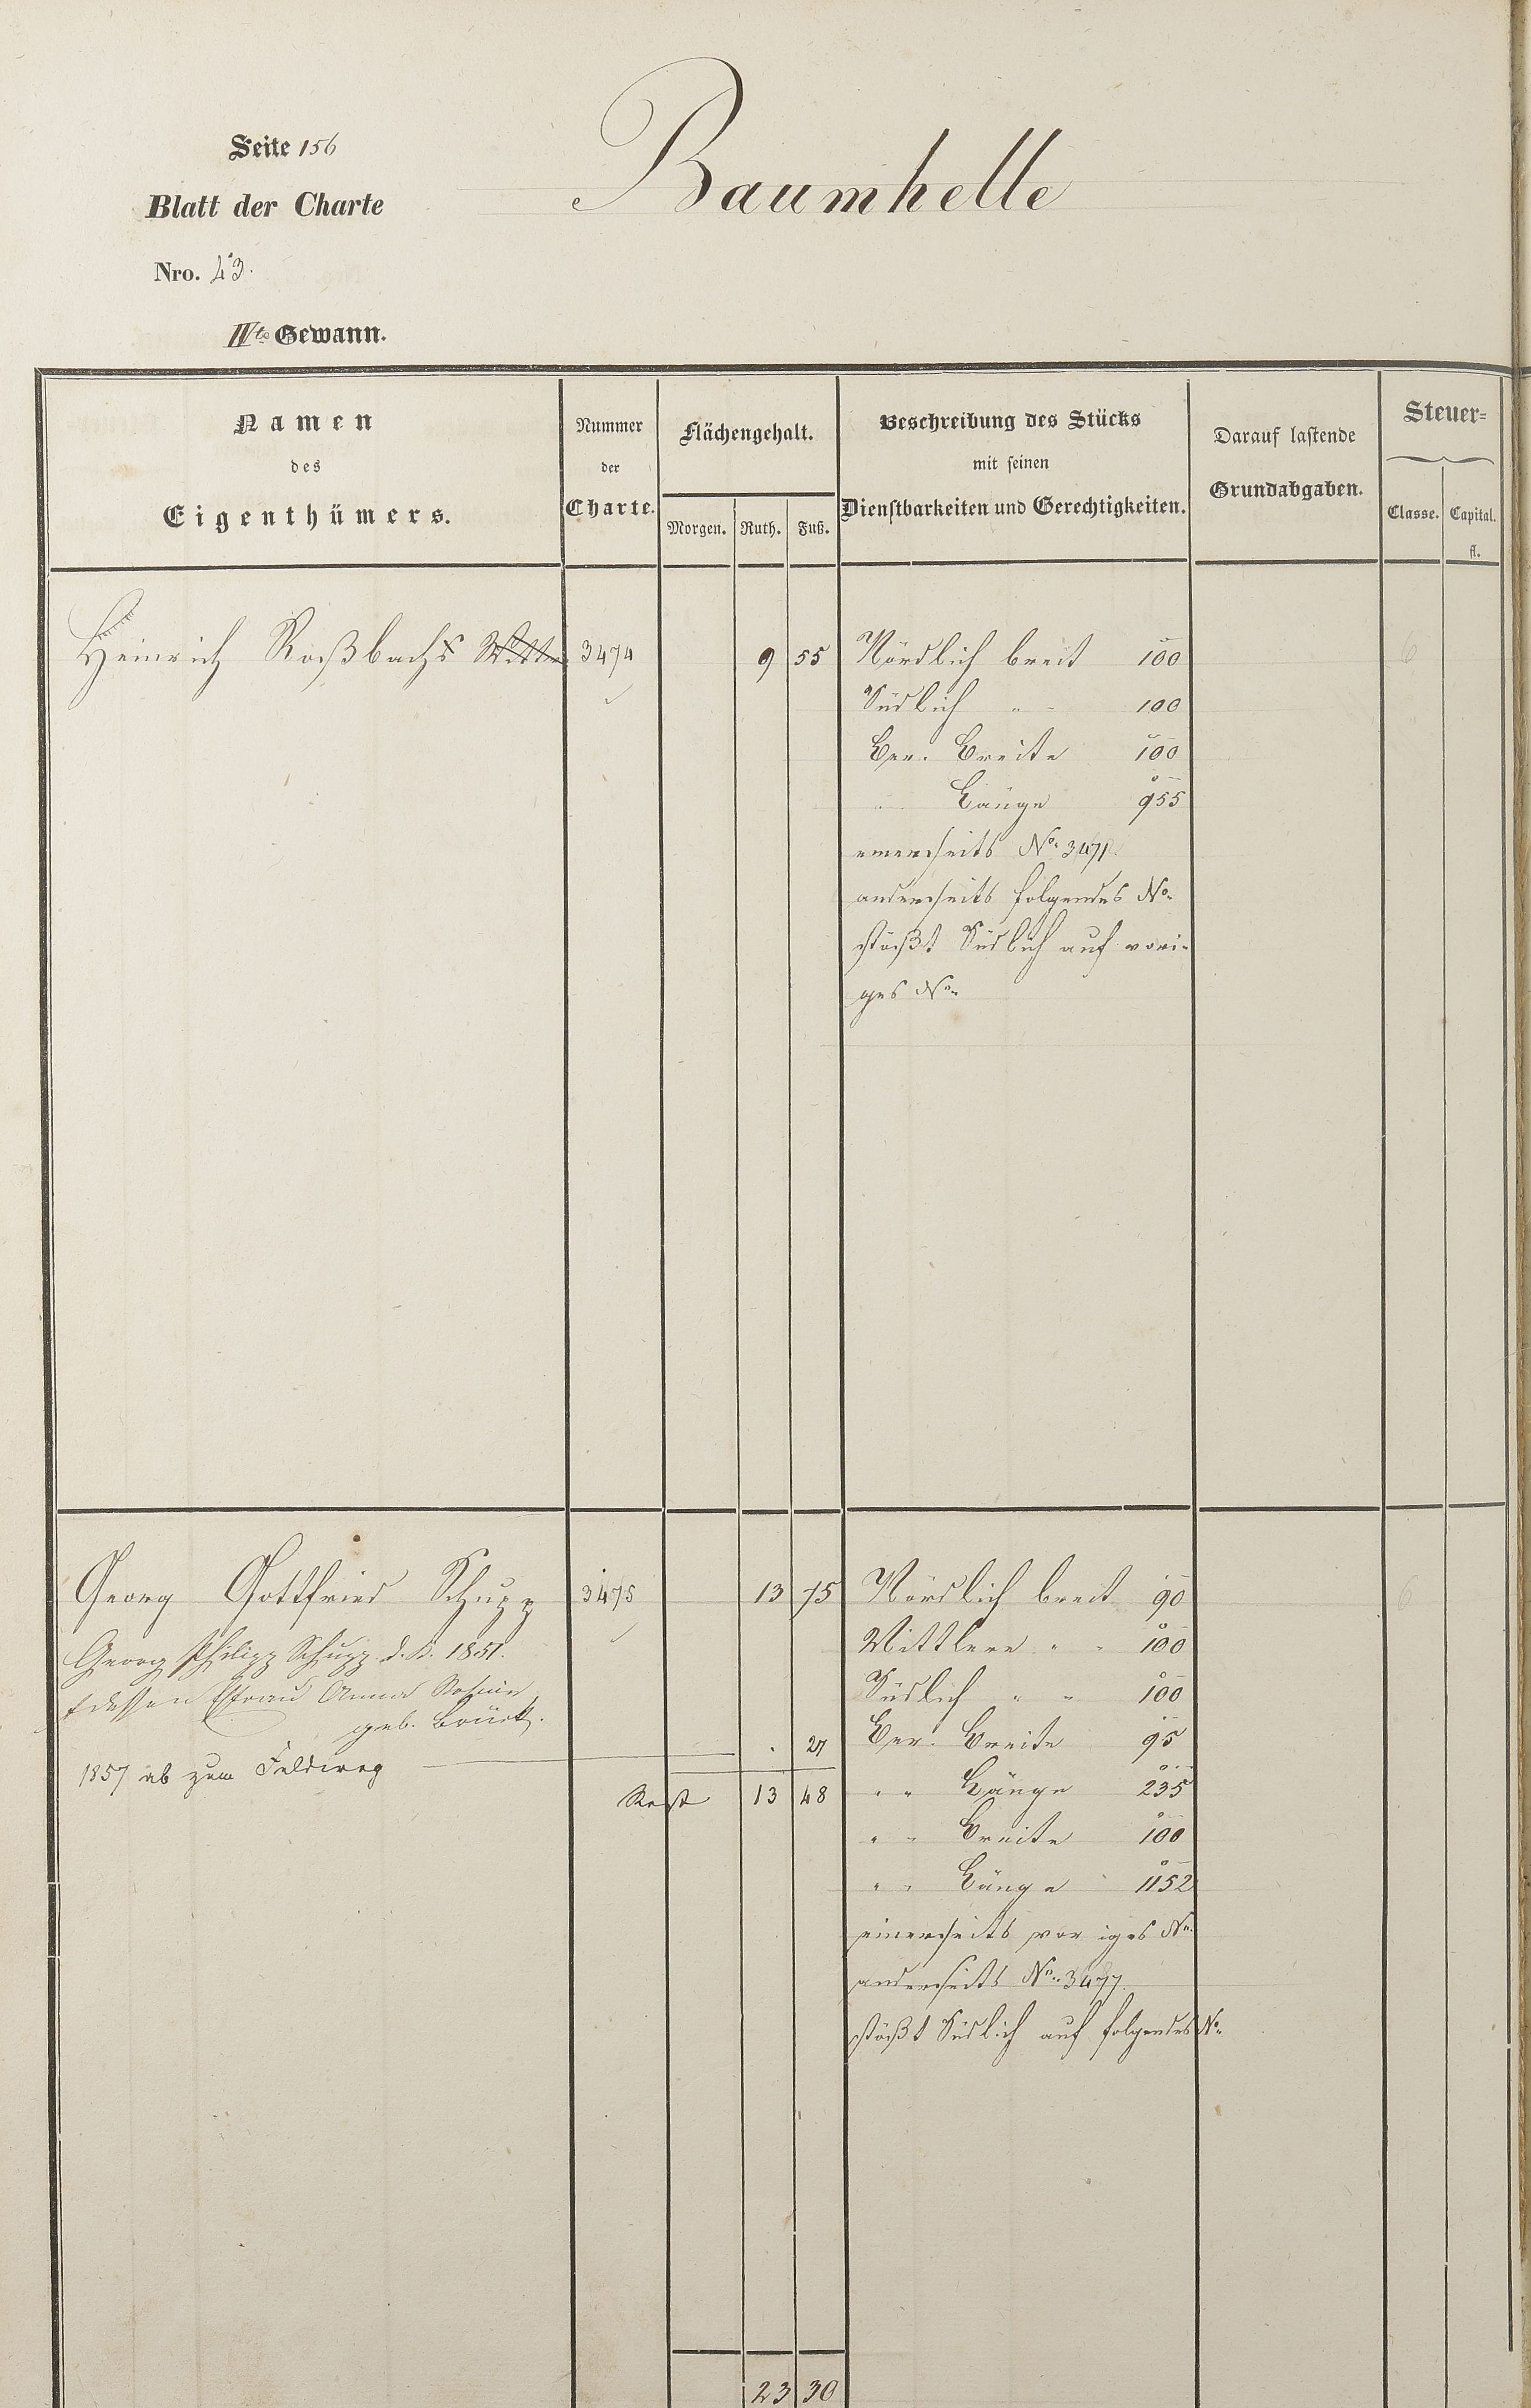 Seite 156
Baumhelle
Blatt der Charte
Nro. 43.
IVte Gewann.
Namen des Eigenthümers.
Nummer der Charte.
Flächengehalt.
Morgen. Ruth. Fuß.
Beschreibung des Stücks mit seinen Dienstbarkeiten und Gerechtigkeiten.
Darauf lastende Grundabgaben.
Steuer=
Classe. Capital. fl.
Heinrich Roßbachs Witte 3474 9 55 Nördlich breit 100 6
Südlich " - 100
Ber. Breite 100
" Länge 955
einerseits No. 3471
anderseits folgendes No.
stößt Südlich auf vori-
ges No.
Georg Gottfried Schupp 3475 13 75 Nördlich breit 90 6
Georg Philipp Schupp d. K. 1851. Mittlere " - 100
& dessen Efrau Anna Südlich " - 100
geb. Brück.
27 Ber. Breite 95
1857 ab zum Feldweg
Rest 13 48 " " Länge 235
" " Breite 100
" " Länge 1152
einerseits voriges No.
anderseits No. 3477
stößt Südlich auf folgendes No.
23 30